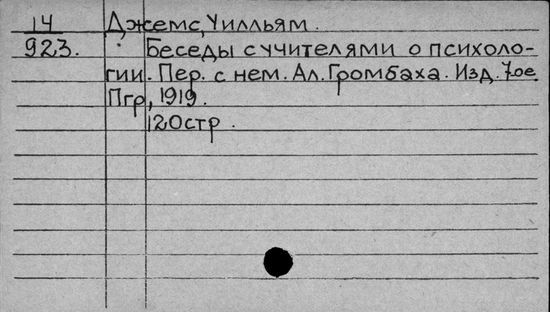 14 Джемс, Уилльям.
923. Беседы с учителями о психоло-
гии. Пер. с нем. Ал. Громбаха. Изд. 7ое.
Пгр, 1919.
120стр.